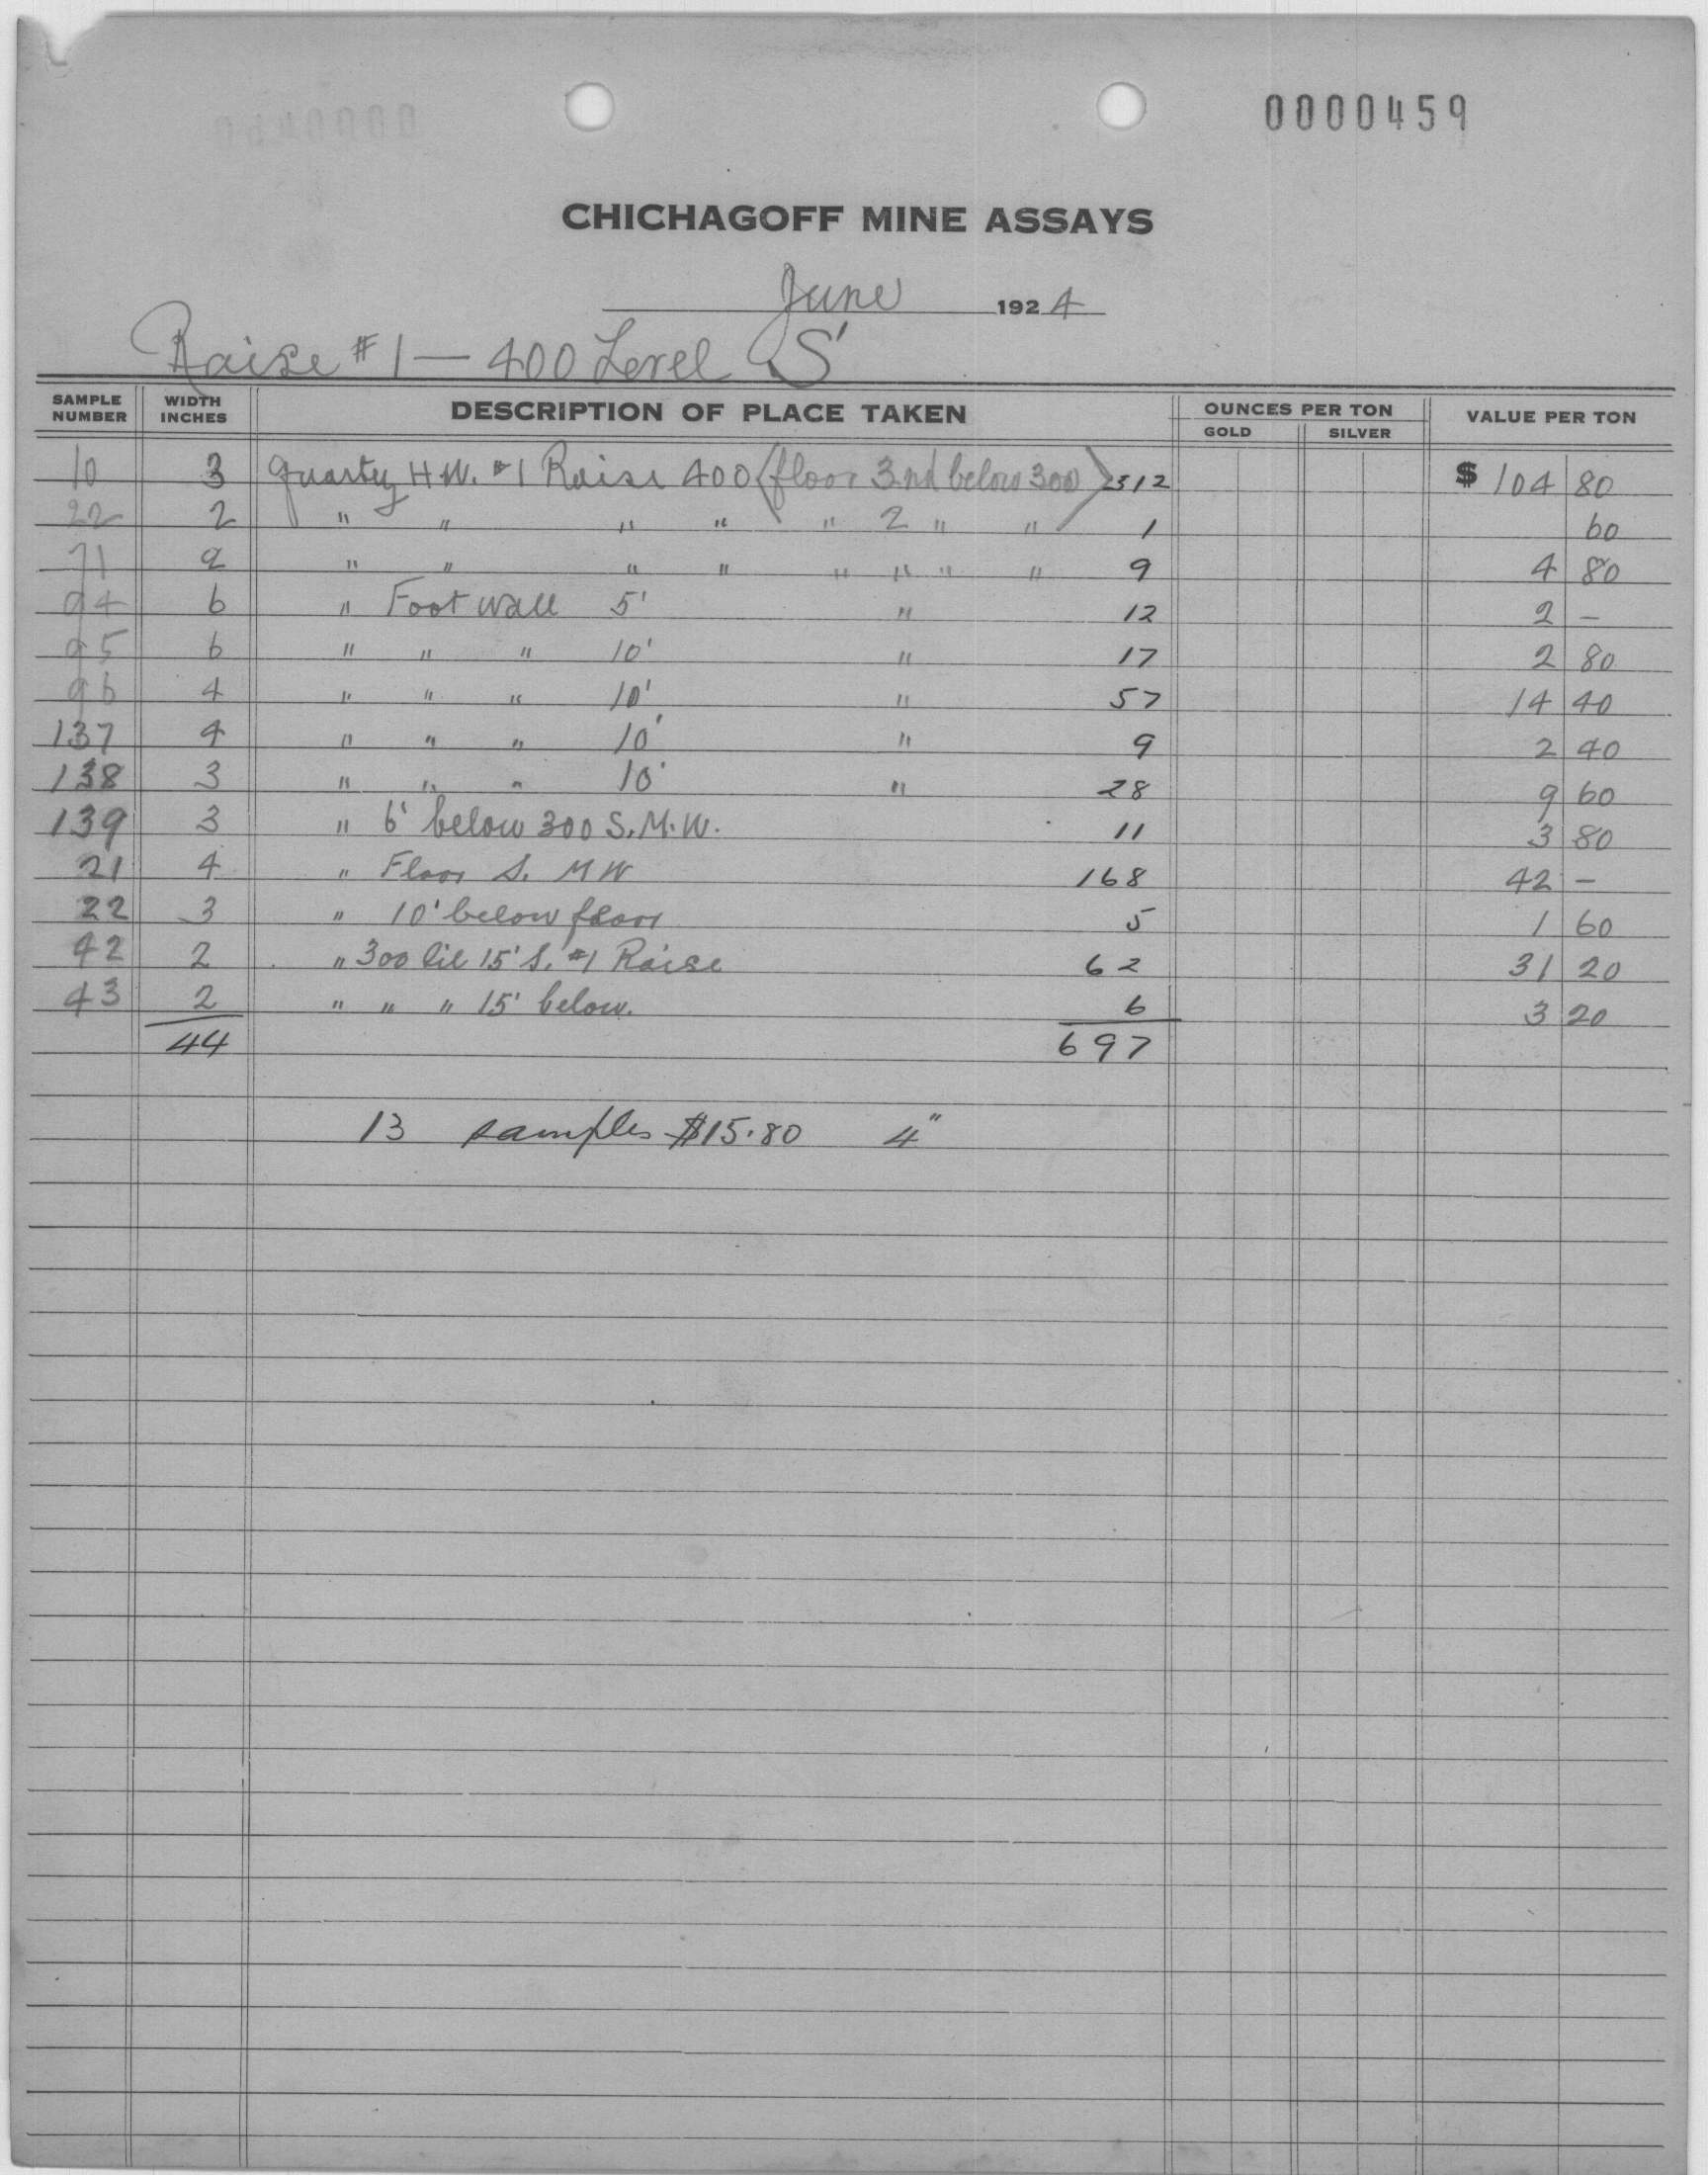 0000459
CHICHAGOFF MINE ASSAYS
June 1924
Raise #1 — 400 Level S
SAMPLE NUMBER WIDTH INCHES DESCRIPTION OF PLACE TAKEN OUNCES PER TON GOLD SILVER VALUE PER TON
10 3 Quartz H.W. #1 Raise 400 (floor 3rd below 300) 312 $104 80
22 2 " " " " " 2 " " 1 60
71 2 " " " " " " " " 9 4 80
94 6 " Foot wall 5' " 12 2 –
95 6 " " " 10' " 17 2 80
96 4 " " " 10' " 57 14 40
137 4 " " " 10' " 9 2 40
138 3 " " " 10' " 28 9 60
139 3 " 6' below 300 S.M.W. 11 3 80
21 4 " Floor S. M W 168 42 –
22 3 " 10' below floor 5 1 60
42 2 " 300 15' S. #1 Raise 62 31 20
43 2 " " " 15' below. 6 3 20
44 697
13 samples $15.80 4"